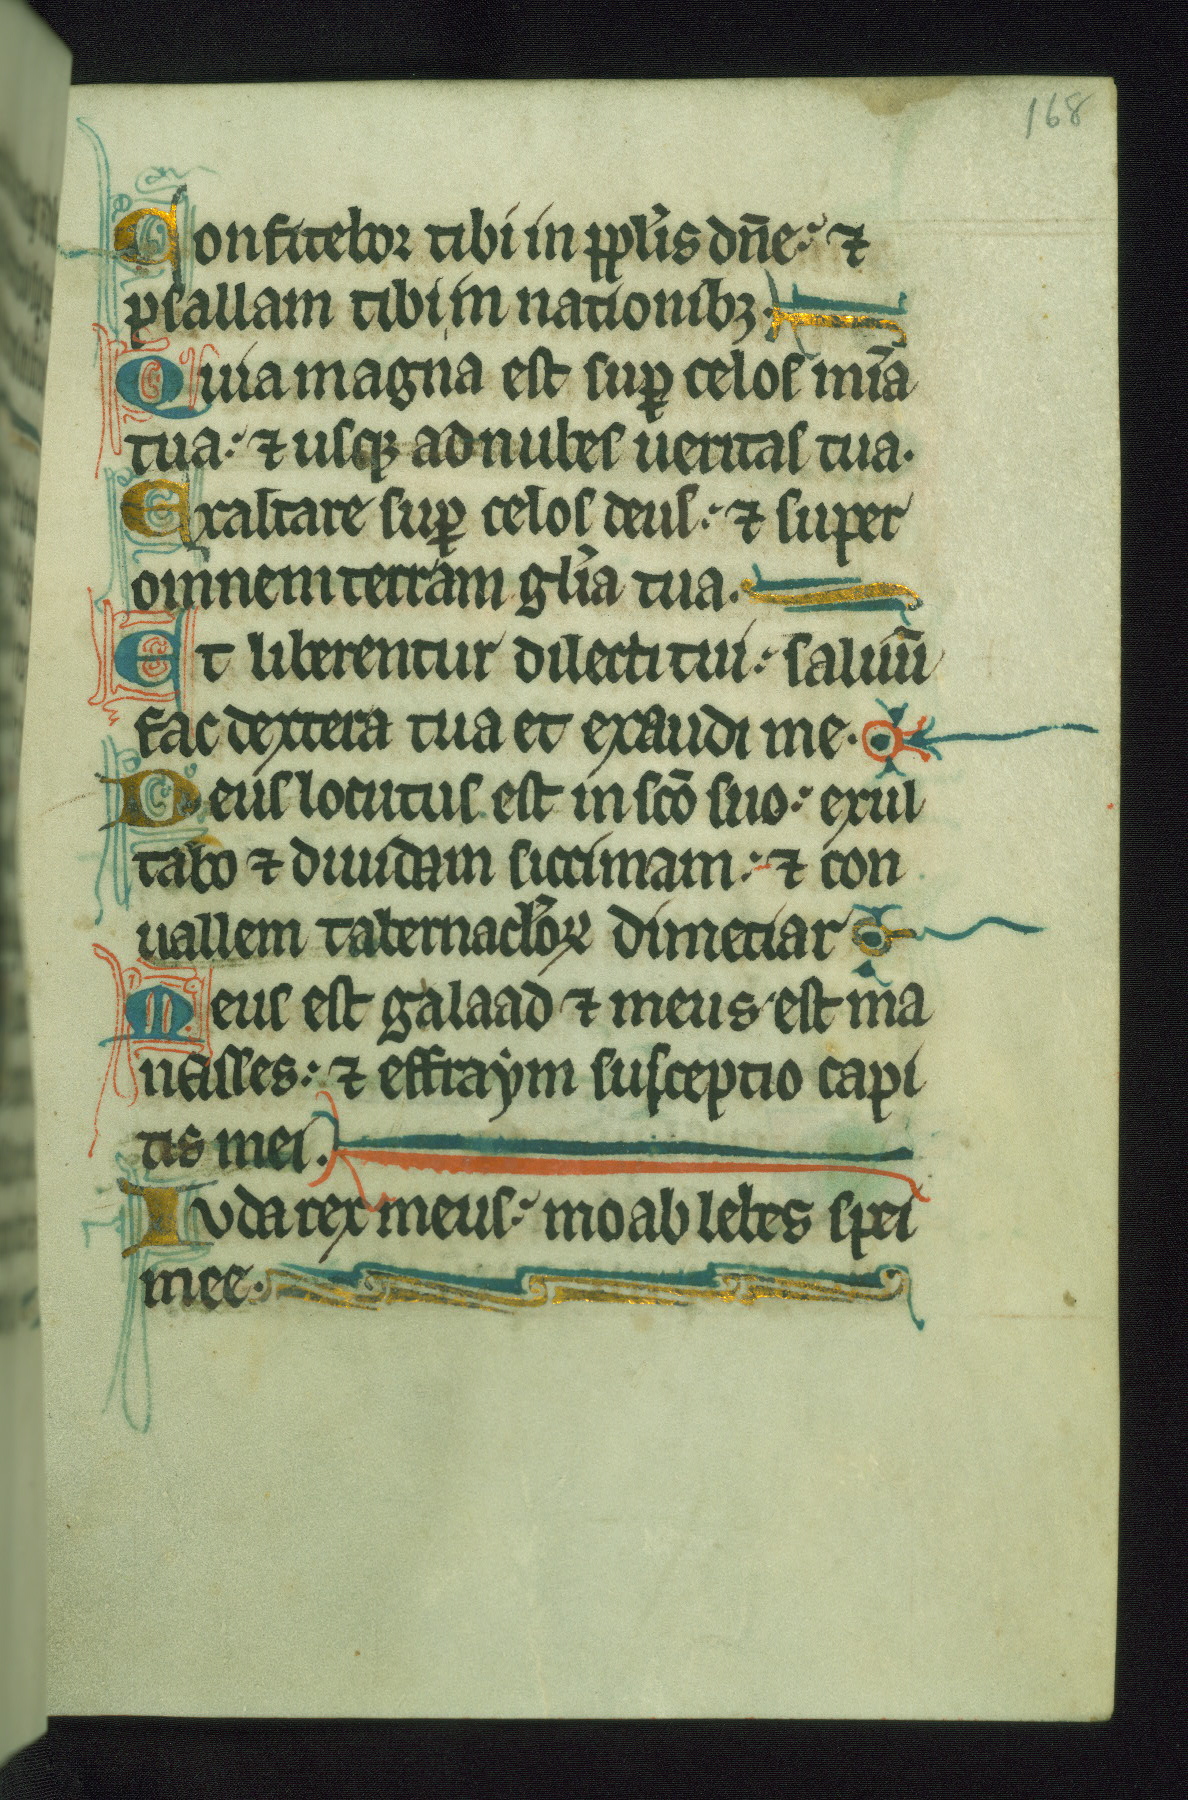 168
Confitebor tibi in pplis dñe: ⁊
psallam tibi in nationibꝫ.
Quia magna est suꝑ celos mĩa
tua: ⁊ usqꝫ ad nubes ueritas tua.
Exaltare suꝑ celos deus: ⁊ super
omnem terram glĩa tua.
Et liberentur dilecti tui: saluũ
fac dextera tua et exaudi me.
Deus locutus est in scõ suo: exul
tabo ⁊ diuidam siccimam: ⁊ con
uallem tabernaclõꝝ dimetiar
Meus est galaad ⁊ meus est ma
nasses: ⁊ effraẏm susceptio capi
tis mei.
Iuda rex meus: moab lebes spei
mee.